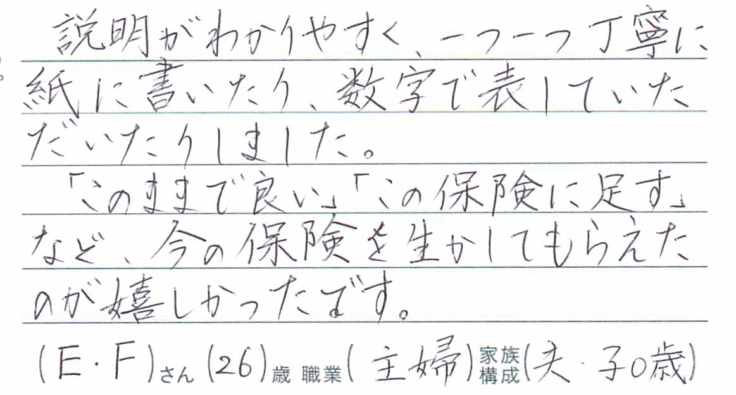 説明がわかりやすく、一つ一つ丁寧に
紙に書いたり、数字で表していた
だいたりしました。
「このままで良い」「この保険に足す」
など、今の保険を生かしてもらえた
のが嬉しかったです。
(E・F)さん(26)歳 職業(主婦)家族構成(夫・子0歳)